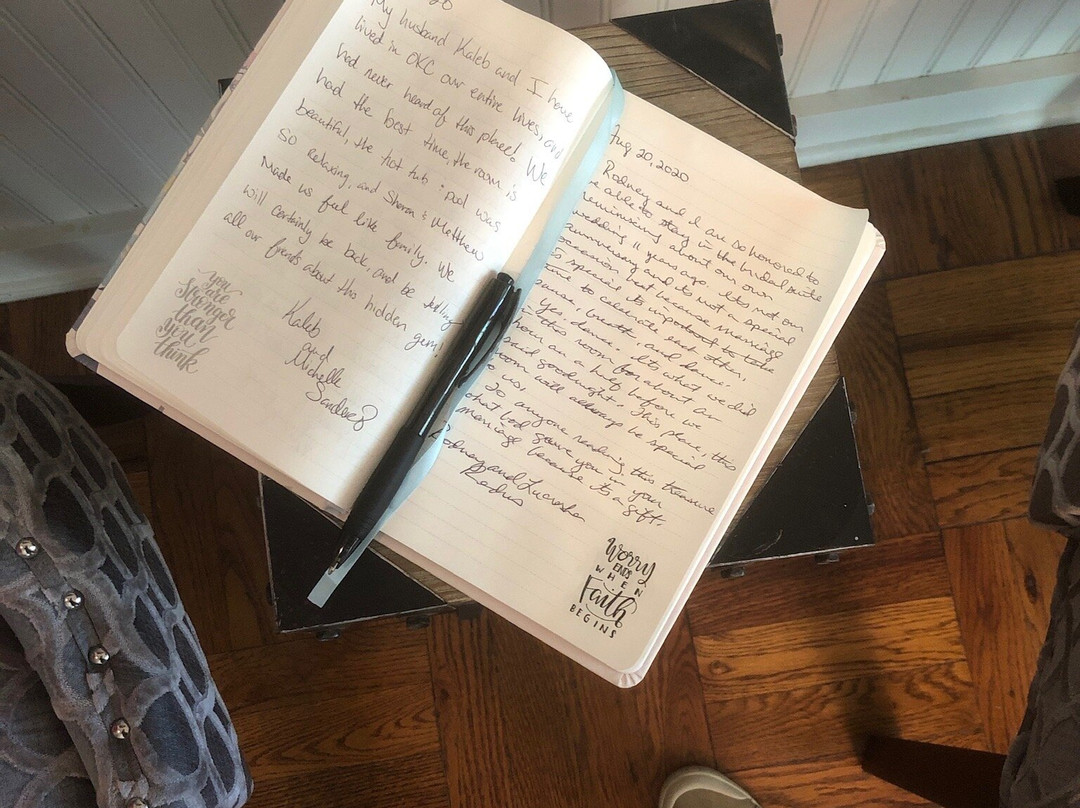 20
My husband Kaleb and I have
lived in OKC our entire lives, and
had never heard of this place! We
had the best time, the room is
beautiful, the hot tub + pool was
so relaxing, and Sharon & Matthew
made us feel like family. We
will certainly be back, and be telling
all our friends about this hidden gem!
Kaleb
and
Michelle
you
are
stronger
than
you
think
Aug 20, 2020
Rodney and I are so honored to
able to stay in the bridal suite
reminiscing about our own
wedding 11 years ago. It's not our
anniversary and it's not a special
occasion, but because marriage
is special it's important to take
time to celebrate each other,
pause, breath, and dance.
Yes, dance, it's what we did
in this room for about an
hour an a half before we
said goodnight. This place, this
room will always be special
to us.
To anyone reading this treasure
what God gave you in your
marriage because its a gift.
Rodney and
Worry
ENDS
WHEN
Faith
BEGINS